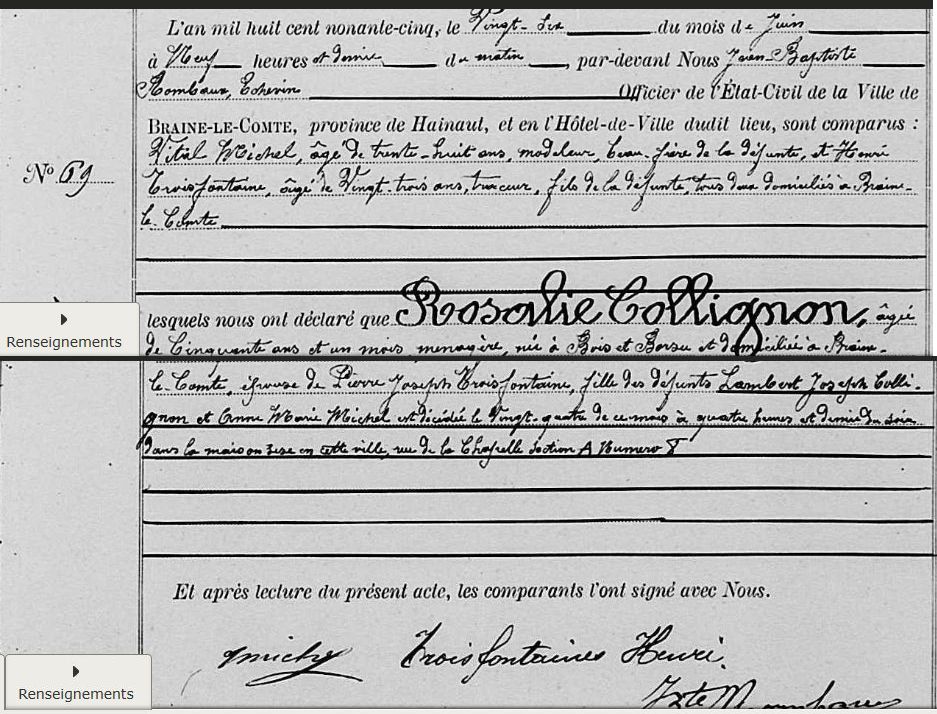 L'an mil huit cent nonante-cinq, le Vingt-six du mois de Juin
à Neuf heures et demie du matin, par-devant Nous Jean-Baptiste
Rombaux, Echevin Officier de l'État-Civil de la Ville de
BRAINE-LE-COMTE, province de Hainaut, et en l'Hôtel-de-Ville dudit lieu, sont comparus :
Vital Michel, âgé de trente-huit ans, modeleur, beau-frère de la défunte, et Henri
Nº 69
Troisfontaine, âgé de Vingt-trois ans, traceur, fils de la défunte, tous deux domiciliés à Braine-
le-Comte
lesquels nous ont déclaré que Rosalie Collignon, âgée
Renseignements
de Cinquante ans et un mois menagère, née à Bois et Borsu et domiciliée à Braine-
le-Comte, épouse de Pierre Joseph Troisfontaine, fille des défunts Lambert Joseph Colli-
gnon et Anne Marie Michel est décédée le Vingt-quatre de ce mois à quatre heures et demie du soir
dans la maison sise en cette ville, rue de la Chapelle section A Numero 8
Et après lecture du présent acte, les comparants l'ont signé avec Nous.
Troisfontaines Henri.
Renseignements